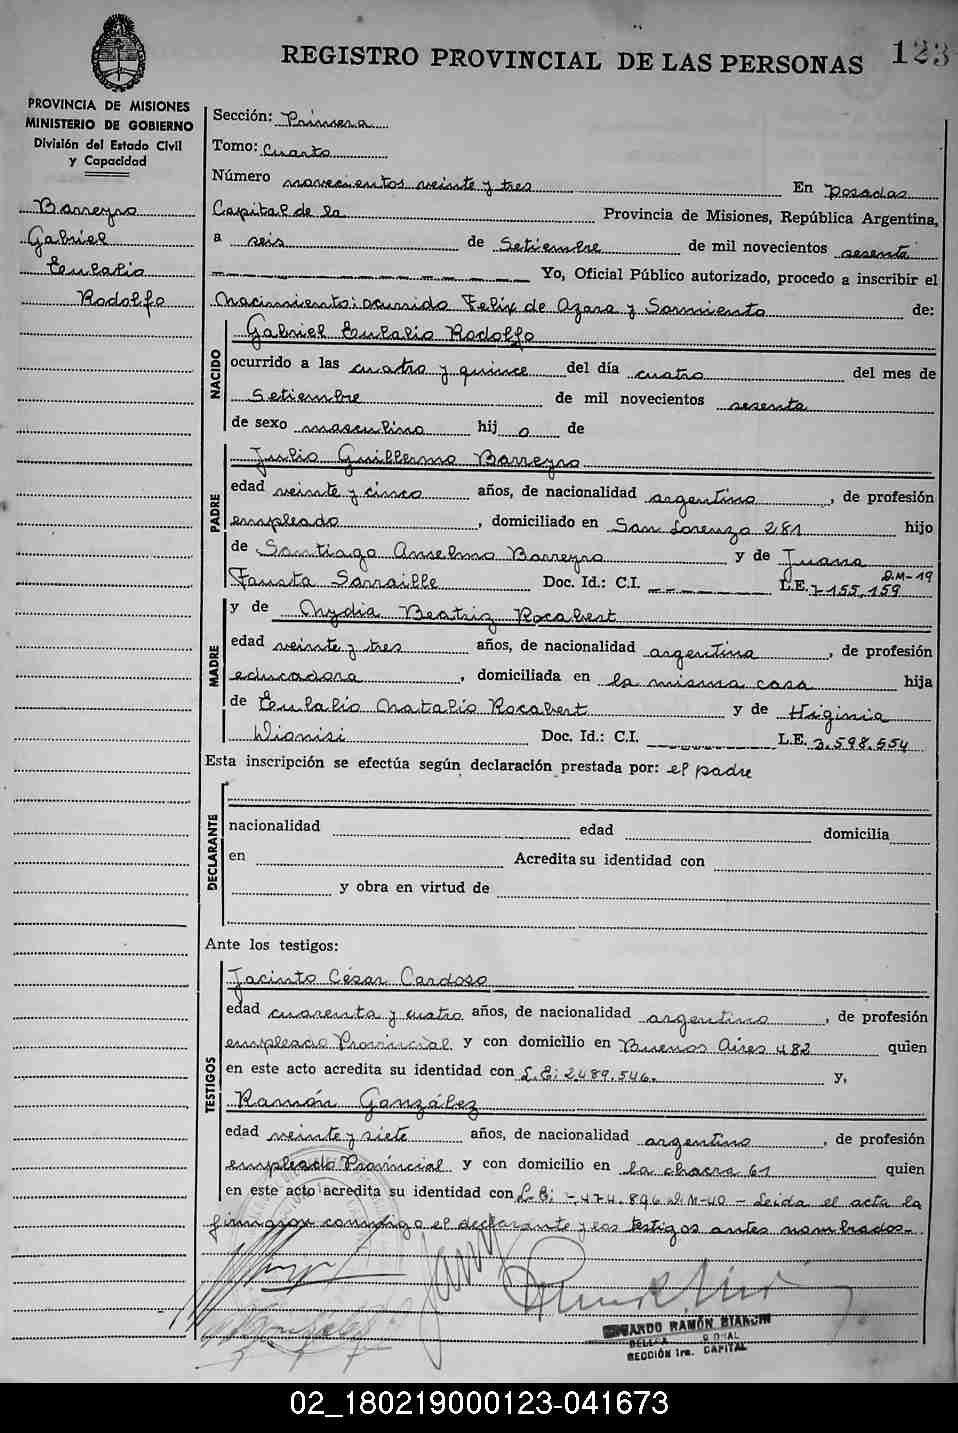 REGISTRO PROVINCIAL DE LAS PERSONAS
123
PROVINCIA DE MISIONES
MINISTERIO DE GOBIERNO
División del Estado Civil
y Capacidad
Barreyro
Gabriel
Eulalio
Rodolfo
Sección: Primera
Tomo: Cuarto
Número novecientos veinte y tres En Posadas
Capital de la Provincia de Misiones, República Argentina,
a seis de Setiembre de mil novecientos sesenta
Yo, Oficial Público autorizado, procedo a inscribir el
Nacimiento: ocurrido Felix de Azara y Sarmiento de:
NACIDO
Gabriel Eulalio Rodolfo
ocurrido a las cuatro y quince del día cuatro del mes de
Setiembre de mil novecientos sesenta
de sexo masculino hij o de
PADRE
Julio Guillermo Barreyro
edad veinte y cinco años, de nacionalidad argentino, de profesión
empleado, domiciliado en San Lorenzo 281 hijo
de Santiago Anselmo Barreyro y de Juana
Fausta Sarraille Doc. Id.: C.I. L.E. 7.155.159 D.M-19
MADRE
y de Nydia Beatriz Rocabert
edad veinte y tres años, de nacionalidad argentina, de profesión
educadora, domiciliada en la misma casa hija
de Eulalio Natalio Rocabert y de Higinia
Dionisi Doc. Id.: C.I. L.E. 3.598.554
Esta inscripción se efectúa según declaración prestada por: el padre
DECLARANTE
nacionalidad edad domicilia
en Acredita su identidad con
y obra en virtud de
Ante los testigos:
TESTIGOS
Jacinto César Cardoso
edad cuarenta y cuatro años, de nacionalidad argentino, de profesión
empleado Provincial y con domicilio en Buenos Aires 482 quien
en este acto acredita su identidad con L.E: 2.489.546. y,
Ramón González
edad veinte y siete años, de nacionalidad argentino, de profesión
empleado Provincial y con domicilio en la chacra 61 quien
en este acto acredita su identidad con L.E: 7.474.896 D.M-40 - Leida el acta la
firmaron conmigo el declarante y los testigos antes nombrados-
RAMÓN BIANCHI
SECCIÓN 1ra. CAPITAL
02_180219000123-041673